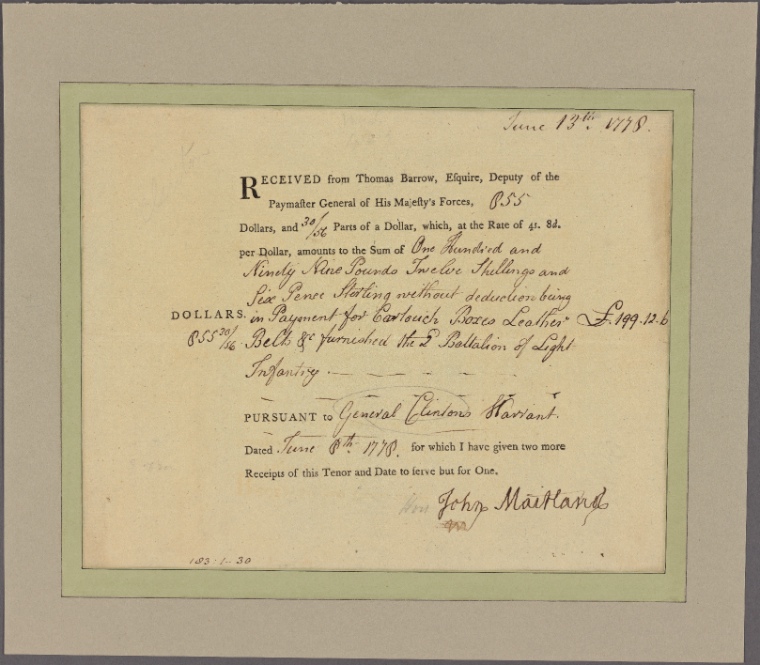 June 13th. 1778.
RECEIVED from Thomas Barrow, Esquire, Deputy of the
Paymaſter General of His Majeſty's Forces, 855
Dollars, and 30/56 Parts of a Dollar, which, at the Rate of 4s. 8d.
per Dollar, amounts to the Sum of One Hundred and
Ninety Nine Pounds Twelve Shillings and
Six Pence Sterling without deduction being
DOLLARS. in Payment for Cartouch Boxes Leather £.199.12.6
855 30/56. Belts &c furnished the 2 Battalion of Light
Infantry
PURSUANT to General Clintons Warrant.
Dated June 8th. 1778. for which I have given two more
Receipts of this Tenor and Date to ſerve but for One.
Hon John Maitland
183:1-30